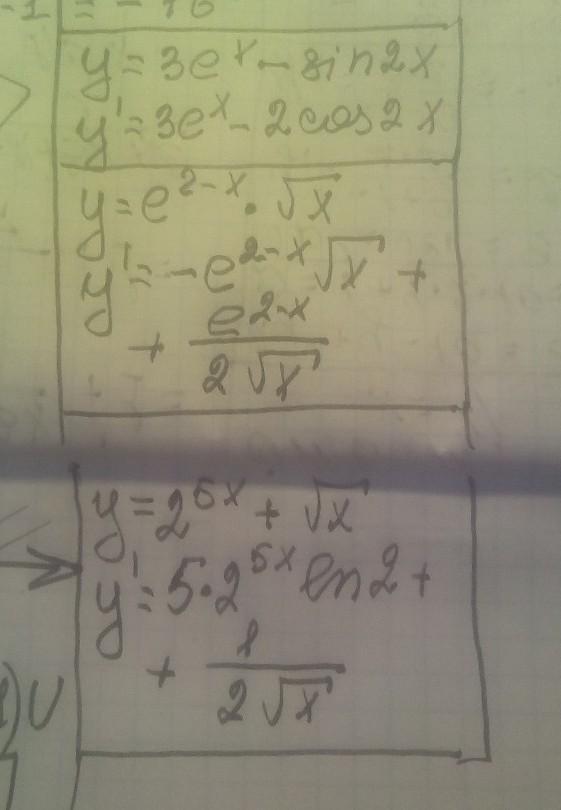 -1 = - 16
y = 3e^x - sin2x
y' = 3e^x - 2cos2x
y = e^{2-x} · √x
y' = -e^{2-x} √x +
+ e^{2-x} / 2√x
y = 2^{5x} + √x
y' = 5·2^{5x} ln2 +
+ 1 / 2√x
) U